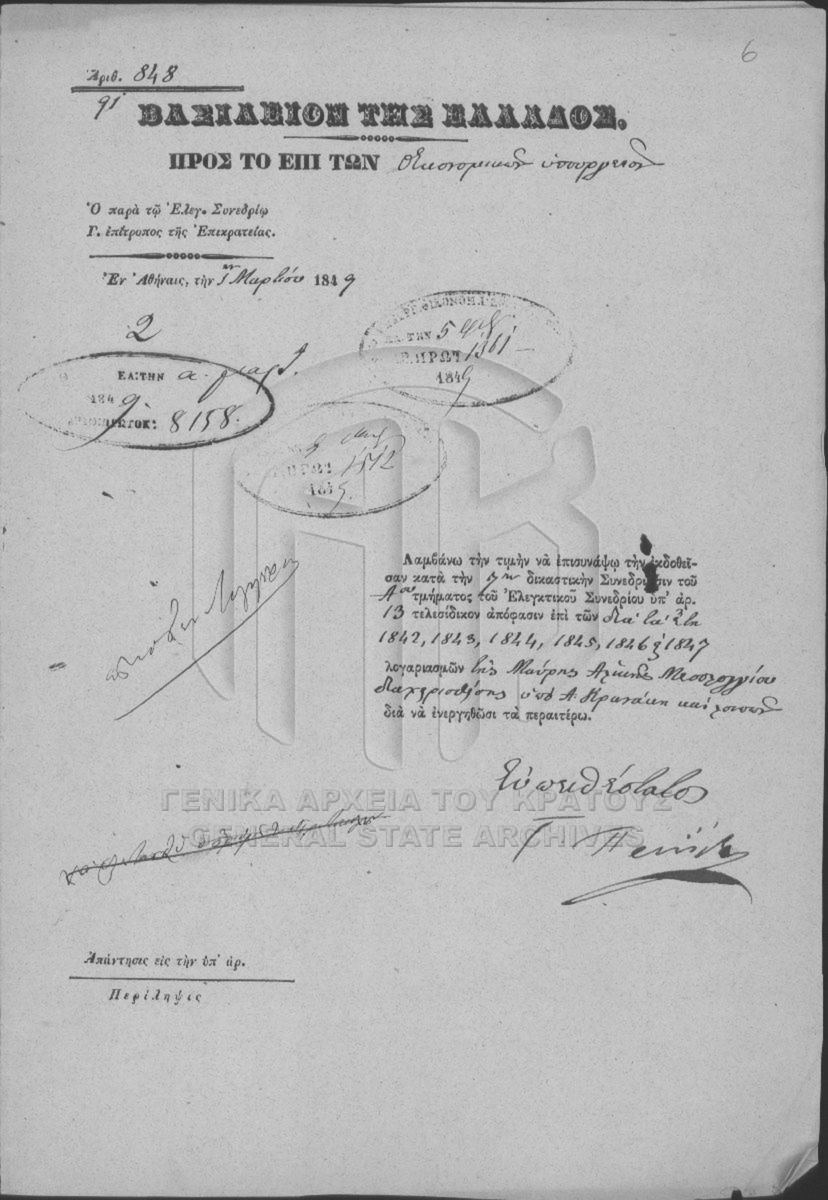 6
Ἀριθ. 848
91
ΒΑΣΙΛΕΙΟΝ ΤΗΣ ΕΛΛΑΔΟΣ.
ΠΡΟΣ ΤΟ ΕΠΙ ΤΩΝ Οἰκονομικῶν ὑπουργεῖον
Ὁ παρὰ τῷ Ἐλεγ. Συνεδρίῳ
Γ. ἐπίτροπος τῆς Ἐπικρατείας.
Ἐν Ἀθήναις, τὴν Μαρτίου 1849
2
5
ΠΡΩΤ 1381
1849
ΕΛ: ΤΗΝ α. μαρτ.
1849
ΠΡΩΤΟΚ: 8158.
ΠΡΩΤ 1512
184
Λαμβάνω τὴν τιμὴν νὰ ἐπισυνάψω τὴν ἐκδοθεῖ-
σαν κατὰ τὴν δικαστικὴν Συνεδρίασιν τοῦ
Αου τμήματος τοῦ Ἐλεγκτικοῦ Συνεδρίου ὑπ' ἀρ.
13 τελεσίδικον ἀπόφασιν ἐπὶ τῶν διὰ τὰ ἔτη
1842, 1843, 1844, 1845, 1846 ϗ 1847
λογαριασμῶν τῆς Μαύρης Ἁλικῆς Μεσολογγίου
διαχειρισθείσης ὑπὸ Α. Κρανάκη καὶ λοιπῶν
διὰ νὰ ἐνεργηθῶσι τὰ περαιτέρω.
Εὐπειθέστατος
ΓΕΝΙΚΑ ΑΡΧΕΙΑ ΤΟΥ ΚΡΑΤΟΥΣ
GENERAL STATE ARCHIVES
Ἀπάντησις εἰς τὴν ὑπ' ἀρ.
Περίληψις